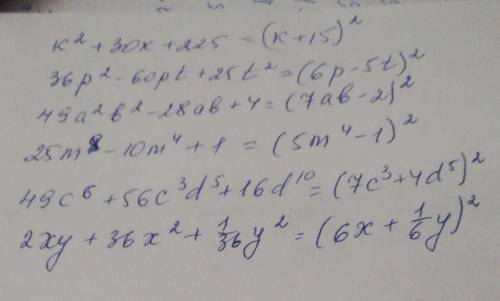 к² + 30к + 225 = (к + 15)²
36p² - 60pt + 25t² = (6p - 5t)²
49a²b² - 28ab + 4 = (7ab - 2)²
25m⁸ - 10m⁴ + 1 = (5m⁴ - 1)²
49c⁶ + 56c³d⁵ + 16d¹⁰ = (7c³ + 4d⁵)²
2xy + 36x² + 1/36 y² = (6x + 1/6 y)²